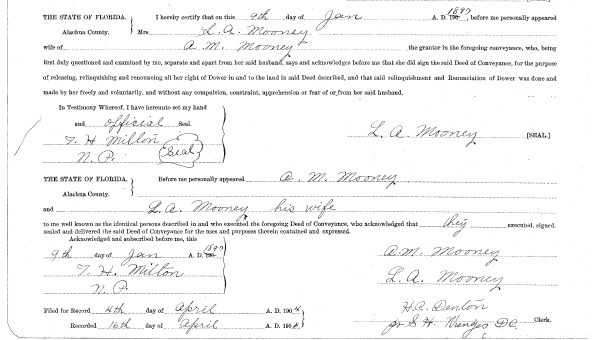 THE STATE OF FLORIDA. } I hereby certify that on this 9th day of Jan A. D. 1897, before me personally appeared
Alachua County. Mrs. L. A. Mooney
wife of A. M. Mooney, the grantor in the foregoing conveyance, who, being
first duly questioned and examined by me, separate and apart from her said husband, says and acknowledges before me that she did sign the said Deed of Conveyance, for the purpose
of releasing, relinquishing and renouncing all her right of Dower in and to the land in said Deed described, and that said relinquishment and Renunciation of Dower was done and
made by her freely and voluntarily, and without any compulsion, constraint, apprehension or fear of or from her said husband.
In Testimony Whereof, I have hereunto set my hand
and official Seal.
T. H. Milton
N. P. (Seal)
L. A. Mooney [SEAL]
THE STATE OF FLORIDA. } Before me personally appeared A. M. Mooney
Alachua County.
and L. A. Mooney his wife
to me well known as the identical persons described in and who executed the foregoing Deed of Conveyance, who acknowledged that they executed, signed,
sealed and delivered the said Deed of Conveyance for the uses and purposes therein contained and expressed.
Acknowledged and subscribed before me, this
9th day of Jan A. D. 1897
T. H. Milton
N. P.
A. M. Mooney
L. A. Mooney
Filed for Record 4th day of April A. D. 1904
Recorded 16th day of April A. D. 1904
H. C. Denton Clerk.
S. H. D C